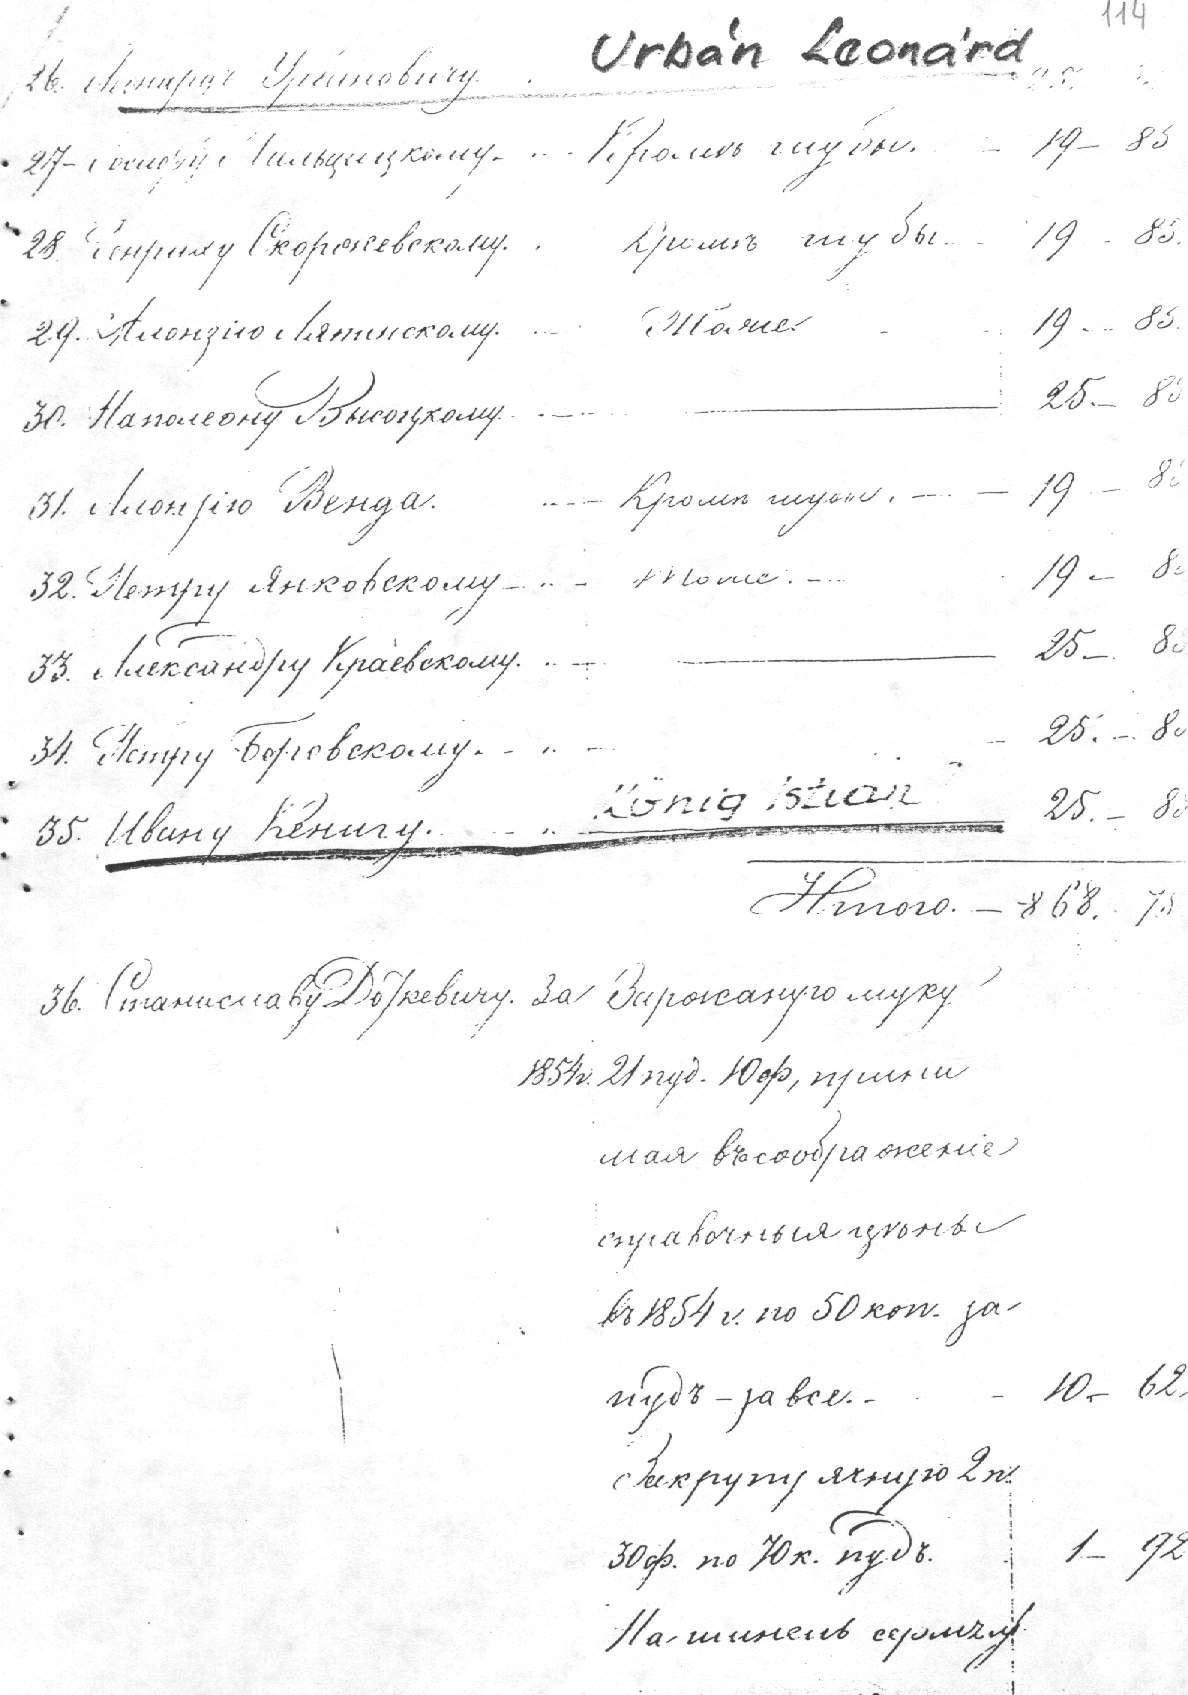 114
Urbán Leonárd
26. Урбановичу.
27 – Иосифу Мильчицкому. – Кромѣ шубы. – 19 – 85
28. Генриху Скоржевскому. Кромѣ шубы. – 19 – 85.
29. Алоизію Лятинскому. – Тоже. 19 – 85.
30. Наполеону Высоцкому – 25. – 85
31. Алоизію Венда. – Кромѣ шубы. – 19 – 8
32. Петру Янковскому – тоже. – 19 – 8
33. Александру Краевскому. – 25 – 8
34. Петру Боровскому. – 25. – 8
35. Ивану Кёнигу. König István 25. – 8
Итого. – 868. 75
36. Станиславу Доткевичу. За Заржаную муку
1854 г. 21 пуд. 10 ф, прини
мая въ соображеніе
справочныя цѣны
въ 1854 г. по 50 коп. за
пудъ – за все. – 10 – 62.
За крупу ячную 2 п.
30 ф. по 70 к. пудъ. 1 – 92
На шинель